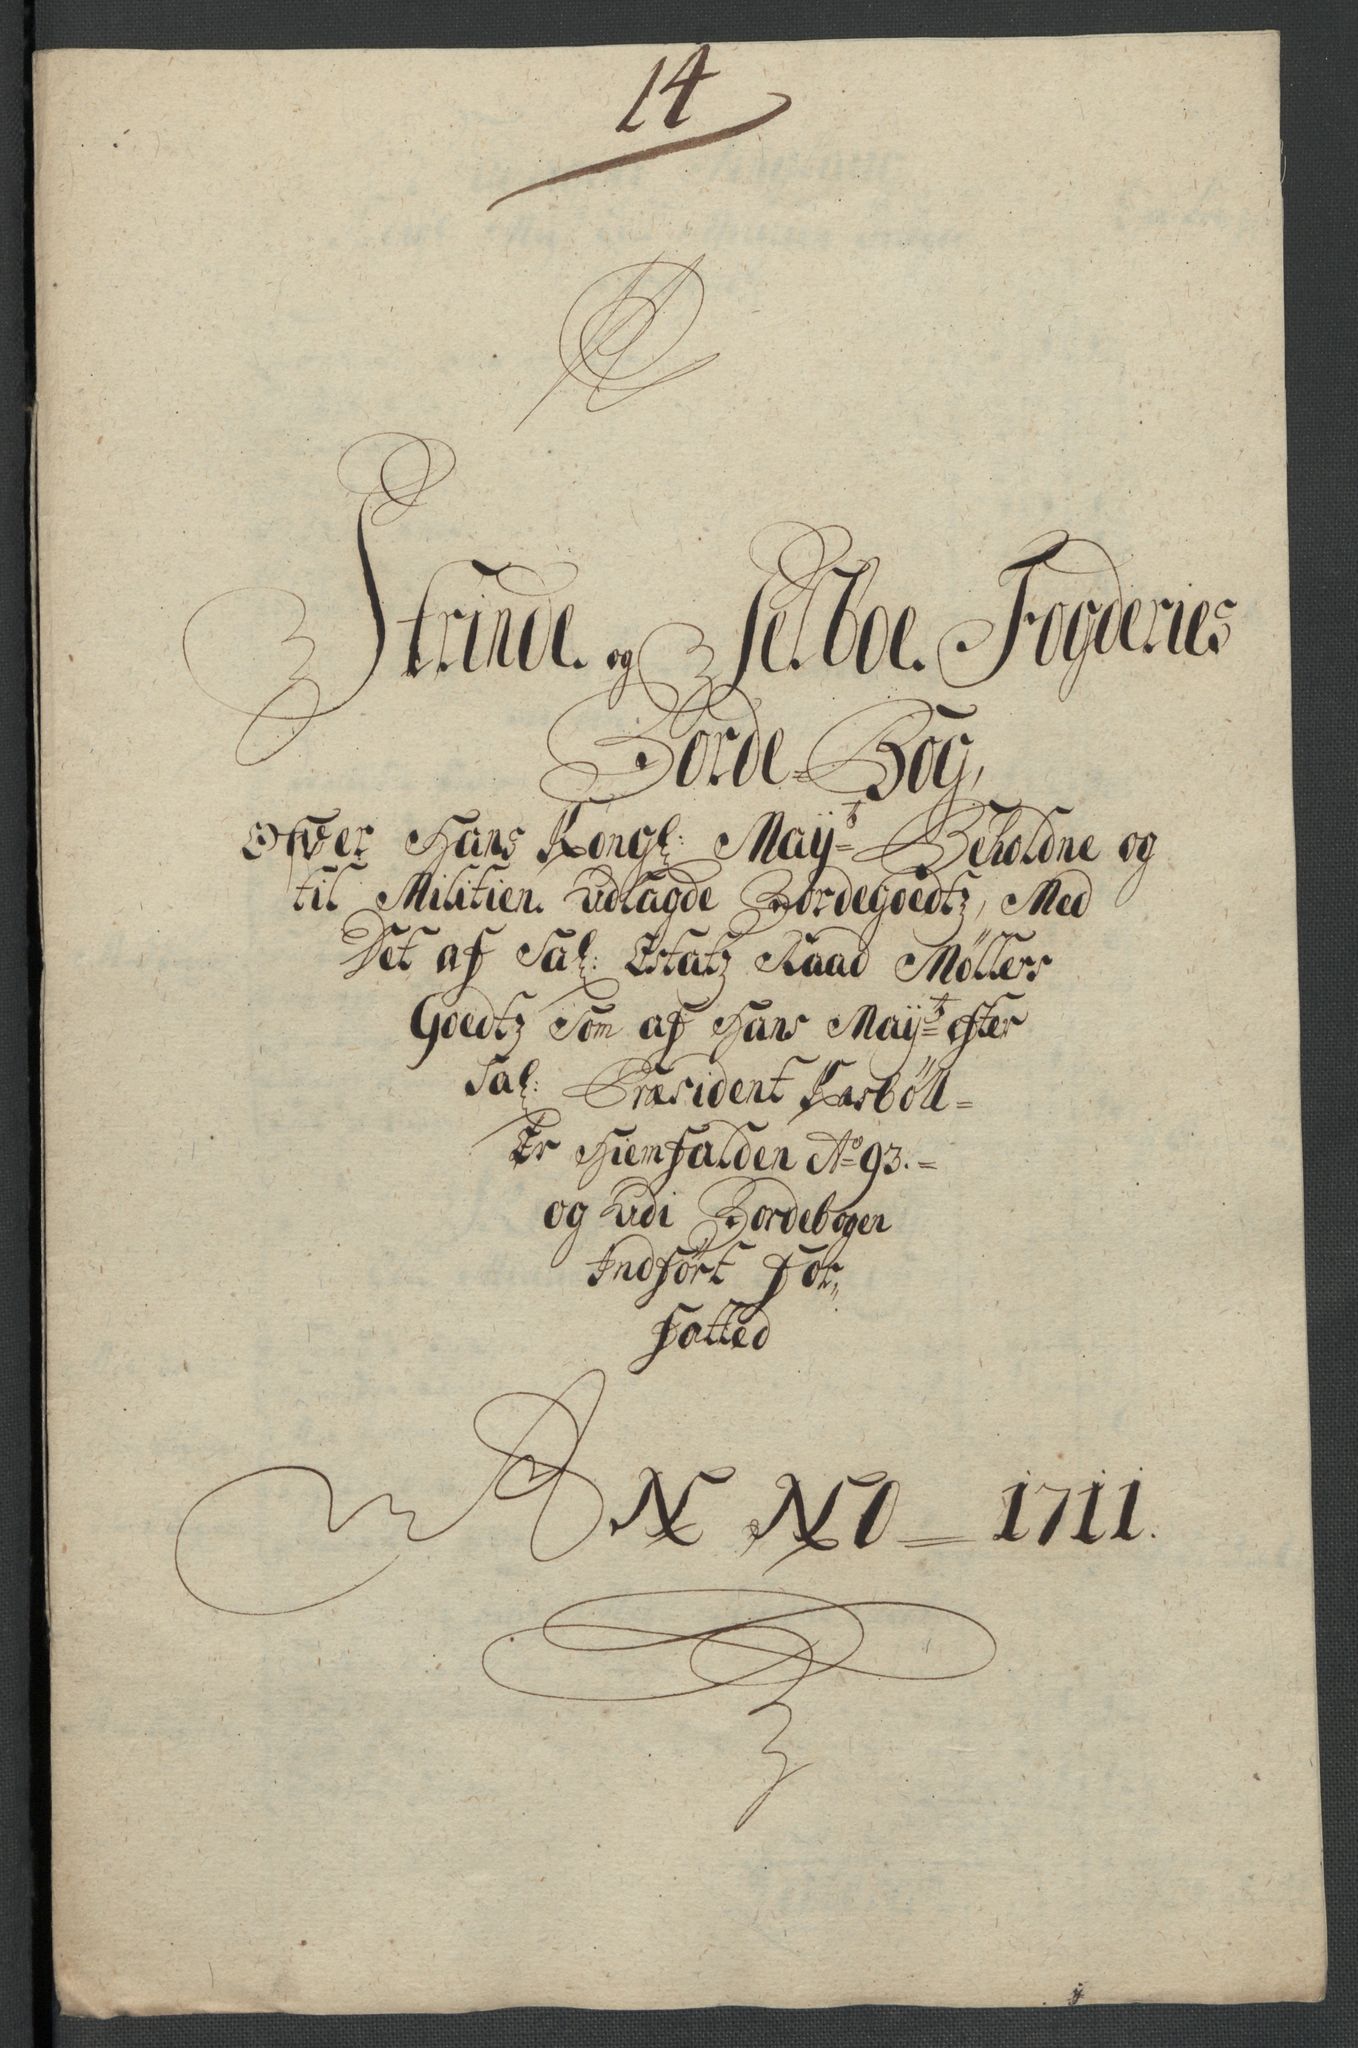 14
Strinde og Selboe Fogderies
Jorde-Bog,
Ofver Hans Kongl: Maÿts Beholdne og
til Militien Udlagde Jordegoedtz, Med
Det af Sal: Estatz Raad Møllers
Goedtz som af Hans Maÿts efter
Sal: Præsident Kasböll=
Er Hiemfalden Ao 93.=
og Udi Jordebogen
Indført for,,
fatted
ANNO = 1711.